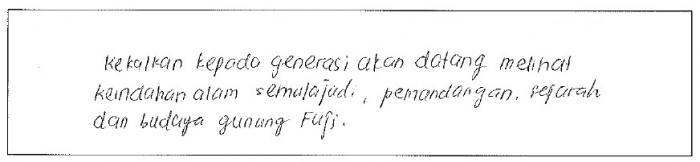 kekalkan kepada generasi akan datang melihat
keindahan alam semulajadi, pemandangan, sejarah
dan budaya gunung Fuji.